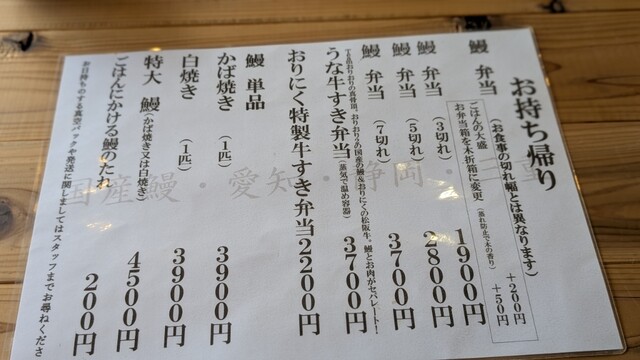 お持ち帰り
(お食事の切れ幅とは異なります)
鰻 弁当
ごはんの大盛 +200円
お弁当箱を木折箱に変更 (蒸れ防止で木の香り) +50円
鰻 弁当 (3切れ) 1900円
鰻 弁当 (5切れ) 2800円
鰻 弁当 (7切れ) 3700円
おりおりの真骨頂、おりおりの国産の鰻&おりにくの松阪牛。鰻とお肉がセパレート!
うな牛すき弁当 (蒸気で温め容器) 3700円
おりにく特製牛すき弁当 2200円
鰻 単品
かば焼き (1匹) 3900円
白焼き (1匹) 3900円
特大 鰻 (かば焼き又は白焼き) 4500円
ごはんにかける鰻のたれ 200円
お日持ちのする真空パックや発送に関しましてはスタッフまでお尋ねくださ
国産鰻・愛知・静岡・